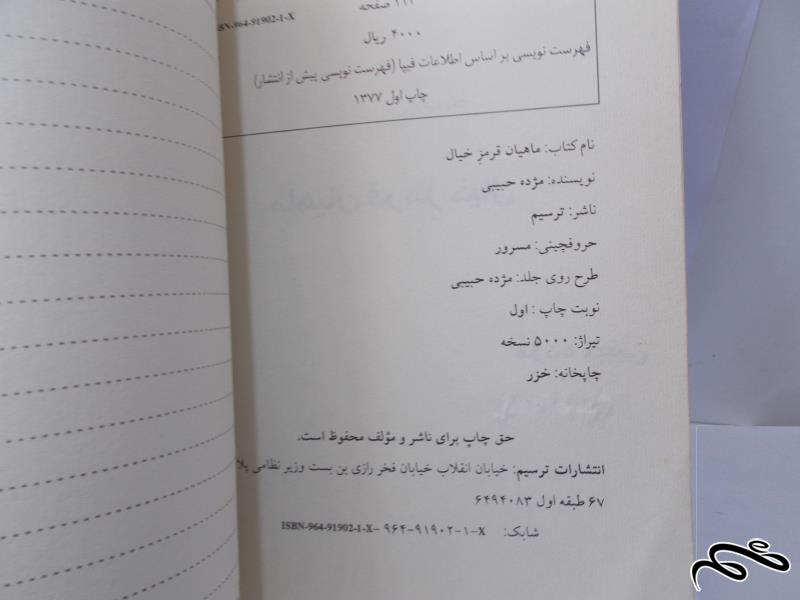 ۱۱۲ صفحه
ISBN-964-91902-1-X
۴۰۰۰ ریال
فهرست نویسی بر اساس اطلاعات فیپا (فهرست نویسی پیش از انتشار)
چاپ اول ۱۳۷۷
نام کتاب: ماهیان قرمزِ خیال
نویسنده: مژده حبیبی
ناشر: ترسیم
حروفچینی: مسرور
طرح روی جلد: مژده حبیبی
نوبت چاپ : اول
تیراژ: ۵۰۰۰ نسخه
چاپخانه: خزر
حق چاپ برای ناشر و مؤلف محفوظ است.
انتشارات ترسیم: خیابان انقلاب خیابان فخر رازی بن بست وزیر نظامی پلا
۶۷ طبقه اول ۶۴۹۴۰۸۳
شابک: ISBN-964-91902-1-X- ۹۶۴-۹۱۹۰۲-۱-X